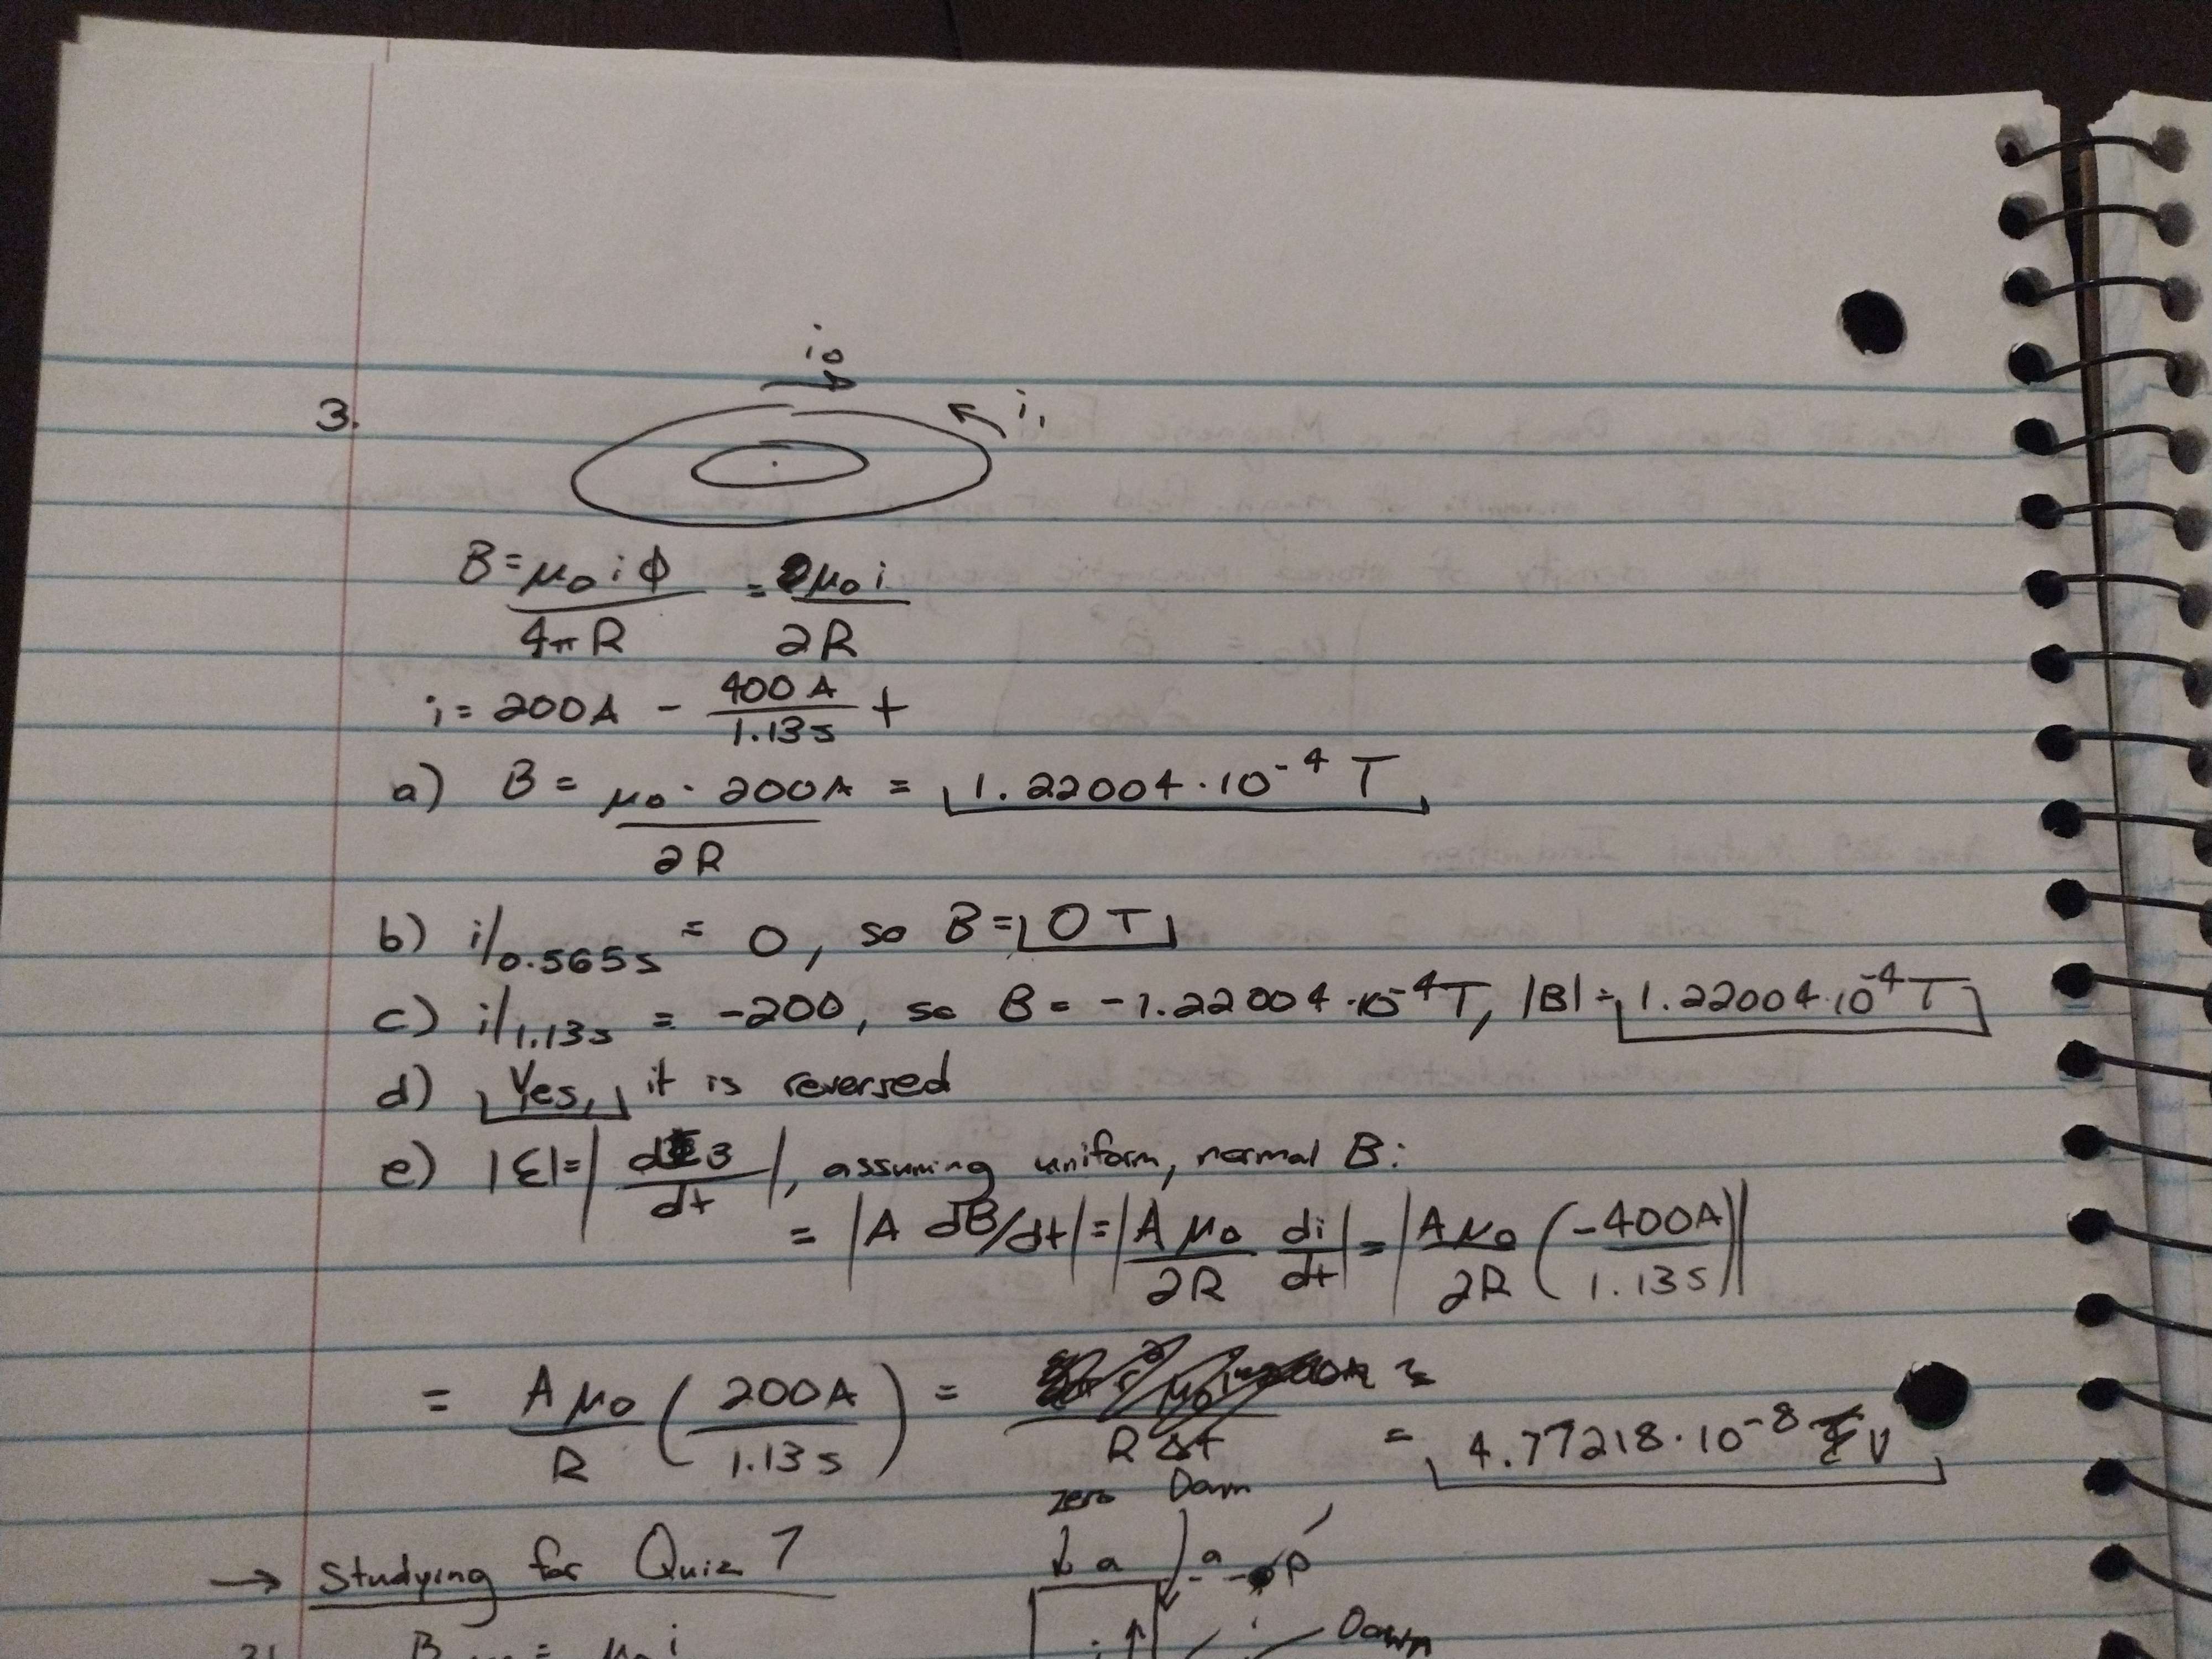 i₀
3.
i₁
B = μ₀iϕ / 4πR = μ₀i / 2R
i = 200A - 400A / 1.13s t
a) B = μ₀ · 200A / 2R = 1.22004 · 10⁻⁴ T
b) i|0.565s = 0, so B = 0 T
c) i|1.13s = -200, so B = -1.22004 · 10⁻⁴ T, |B| = 1.22004 · 10⁻⁴ T
d) Yes, it is reversed
e) |ℰ| = | dΦB / dt |, assuming uniform, normal B:
= |A dB/dt| = | Aμ₀ / 2R di / dt | = | Aμ₀ / 2R ( -400A / 1.13s ) |
= Aμ₀ / R ( 200A / 1.13s ) = R Δt = 4.77218 · 10⁻⁸ V
zero Down
→ Studying for Quiz 7
a a P
Down
31. B = μ₀i
i